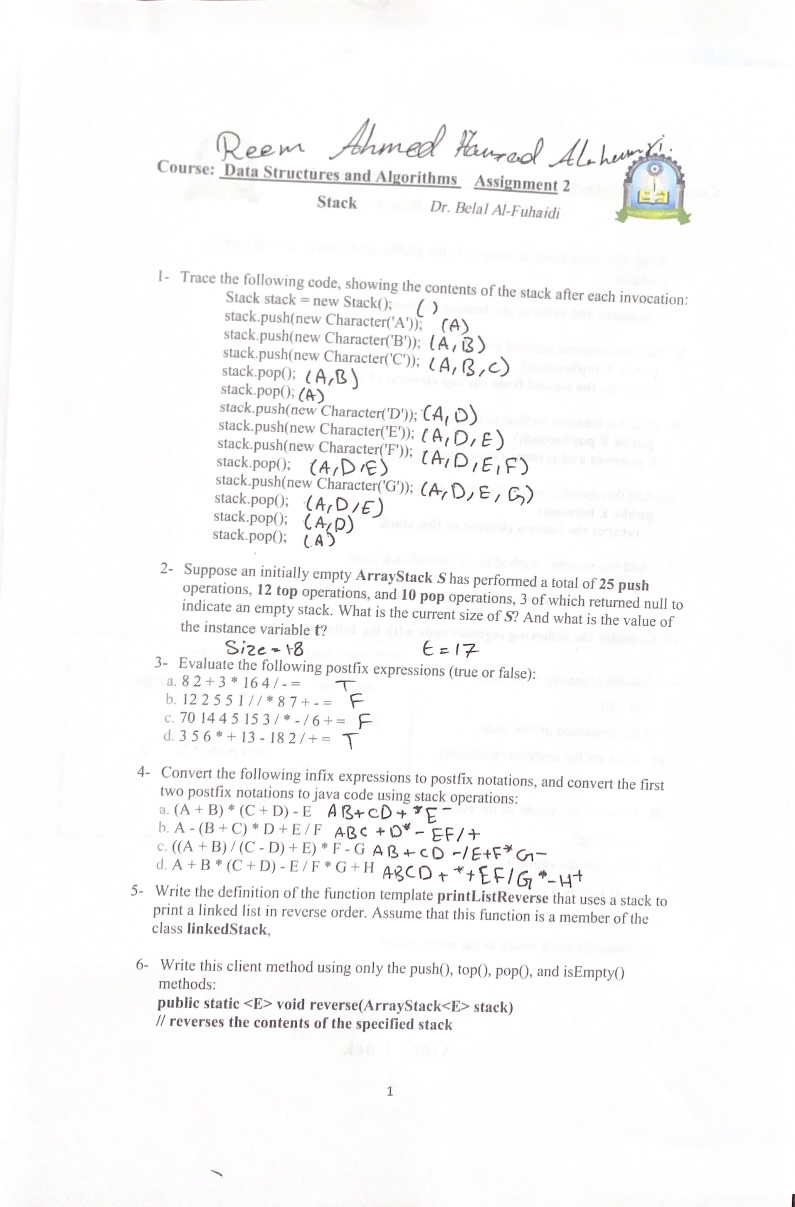 Reem Ahmed
Course: Data Structures and Algorithms Assignment 2
Stack Dr. Belal Al-Fuhaidi
1- Trace the following code, showing the contents of the stack after each invocation:
Stack stack = new Stack(); ( )
stack.push(new Character('A')); (A)
stack.push(new Character('B')); (A,B)
stack.push(new Character('C')); (A,B,C)
stack.pop(); (A,B)
stack.pop(); (A)
stack.push(new Character('D')); (A,D)
stack.push(new Character('E')); (A,D,E)
stack.push(new Character('F')); (A,D,E,F)
stack.pop(); (A,D,E)
stack.push(new Character('G')); (A,D,E,G)
stack.pop(); (A,D,E)
stack.pop(); (A,D)
stack.pop(); (A)
2- Suppose an initially empty ArrayStack S has performed a total of 25 push
operations, 12 top operations, and 10 pop operations, 3 of which returned null to
indicate an empty stack. What is the current size of S? And what is the value of
the instance variable t?
Size = 18 t = 17
3- Evaluate the following postfix expressions (true or false):
a. 8 2 + 3 * 16 4 / - = T
b. 12 2 5 5 1 / / * 8 7 + - = F
c. 70 14 4 5 15 3 / * - / 6 + = F
d. 3 5 6 * + 13 - 18 2 / + = T
4- Convert the following infix expressions to postfix notations, and convert the first
two postfix notations to java code using stack operations:
a. (A + B) * (C + D) - E AB+CD+*E-
b. A - (B + C) * D + E / F ABC+D*-EF/+
c. ((A + B) / (C - D) + E) * F - G AB+CD-/E+F*G-
d. A + B * (C + D) - E / F * G + H ABCD+*+EF/G*-H+
5- Write the definition of the function template printListReverse that uses a stack to
print a linked list in reverse order. Assume that this function is a member of the
class linkedStack,
6- Write this client method using only the push(), top(), pop(), and isEmpty()
methods:
public static <E> void reverse(ArrayStack<E> stack)
// reverses the contents of the specified stack
1